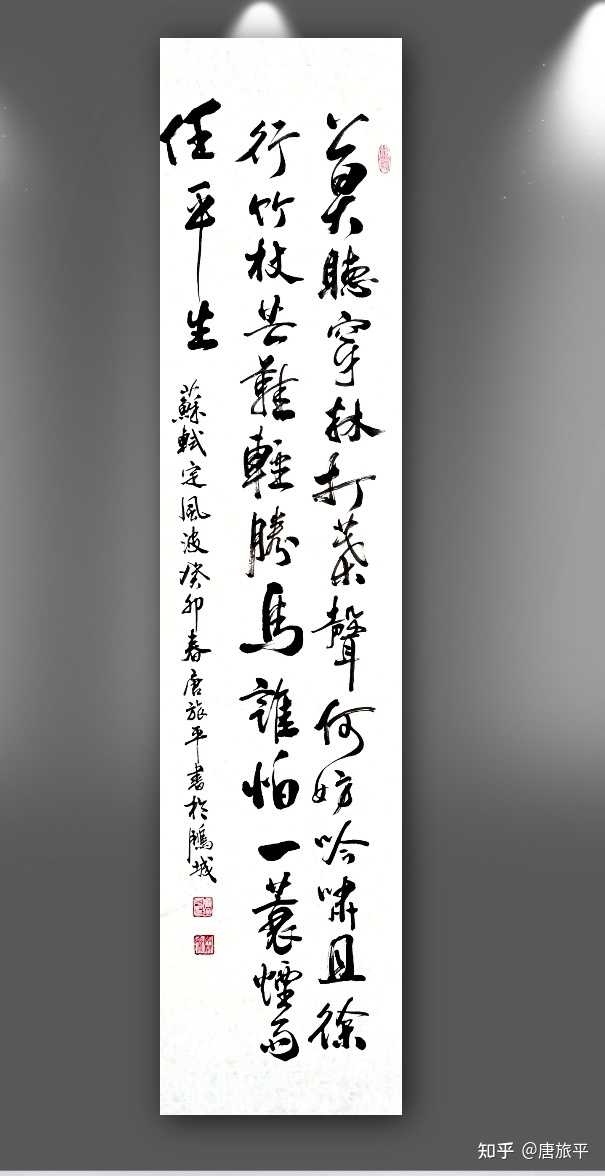 莫聽穿林打葉聲何妨吟嘯且徐
行竹杖芒鞋輕勝馬誰怕一蓑煙雨
任平生
蘇軾定風波癸卯春唐旅平書於鵬城
知乎 @唐旅平